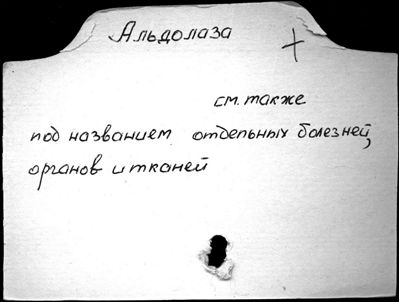 Альдолаза +
см. также
под названием отдельных болезней,
органов и тканей